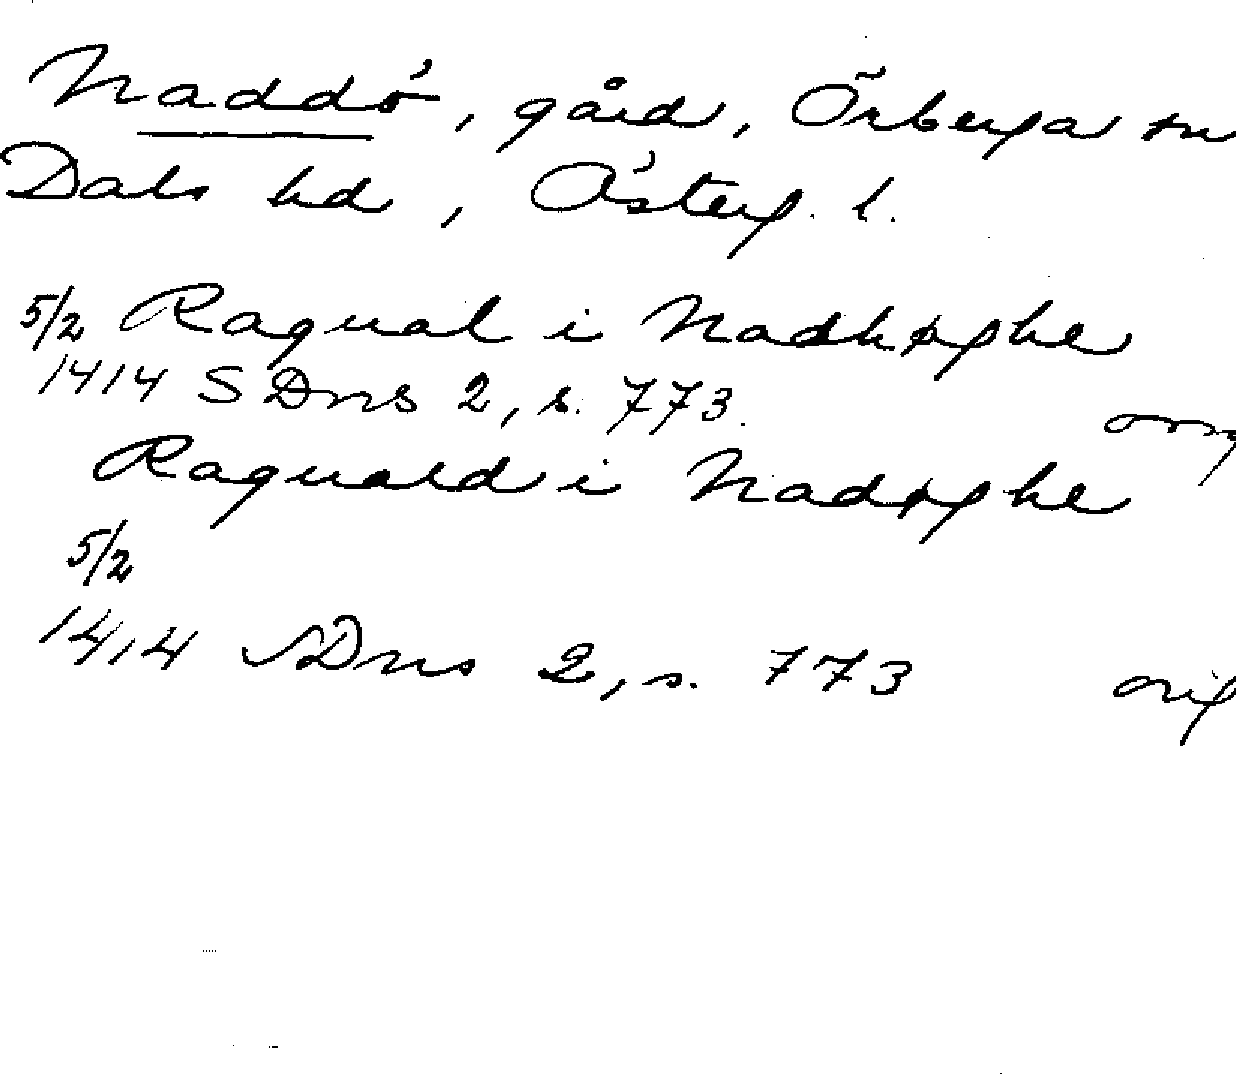 Naddö, gård, Örberga sn
Dals hd, Österg. l.
5/2 Ragual i Nadhøghe
1414 SDns 2, s. 773.
orig
Raguald i Nadøghe
5/2
1414 SDns 2, s. 773 orig